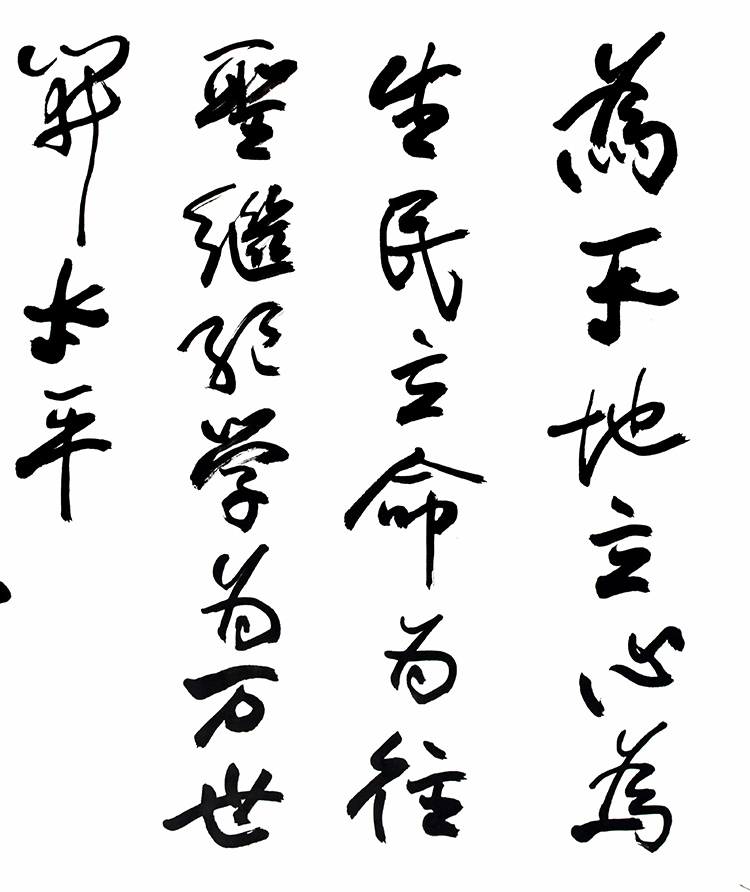 為天地立心為
生民立命为往
聖継绝学为万世
開太平